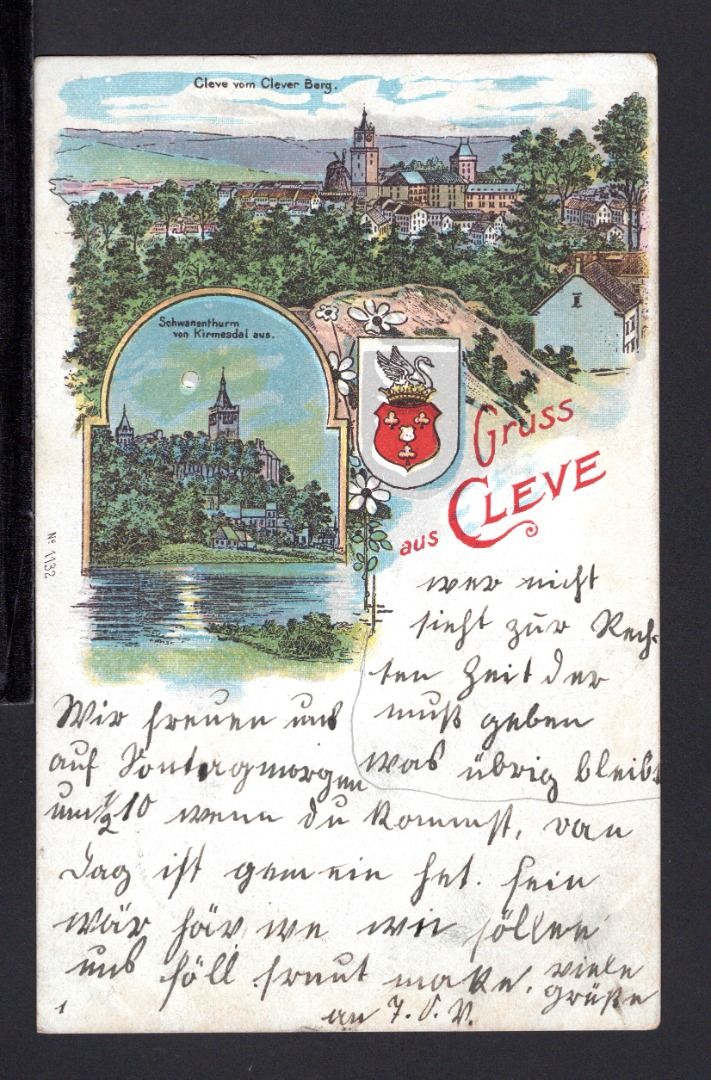 Cleve vom Clever Berg.
Schwanenthurm
von Kirmesdal aus.
Gruss
aus CLEVE
No 1132
wer nicht
sieht zur Rech-
ten Zeit der
muß geben
was übrig bleibt
Wir freuen uns
auf Sontagmorgen
um ½10 wenn du kommst, van
dag ist gemein het. sein
wär häv we wir söllen
uns söll fraut make. viele
grüße
an J. S. V.
1